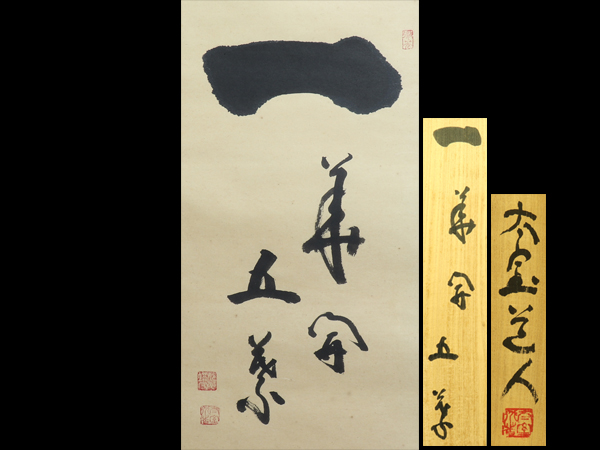 一
華開
五葉
一華開五葉
太室道人